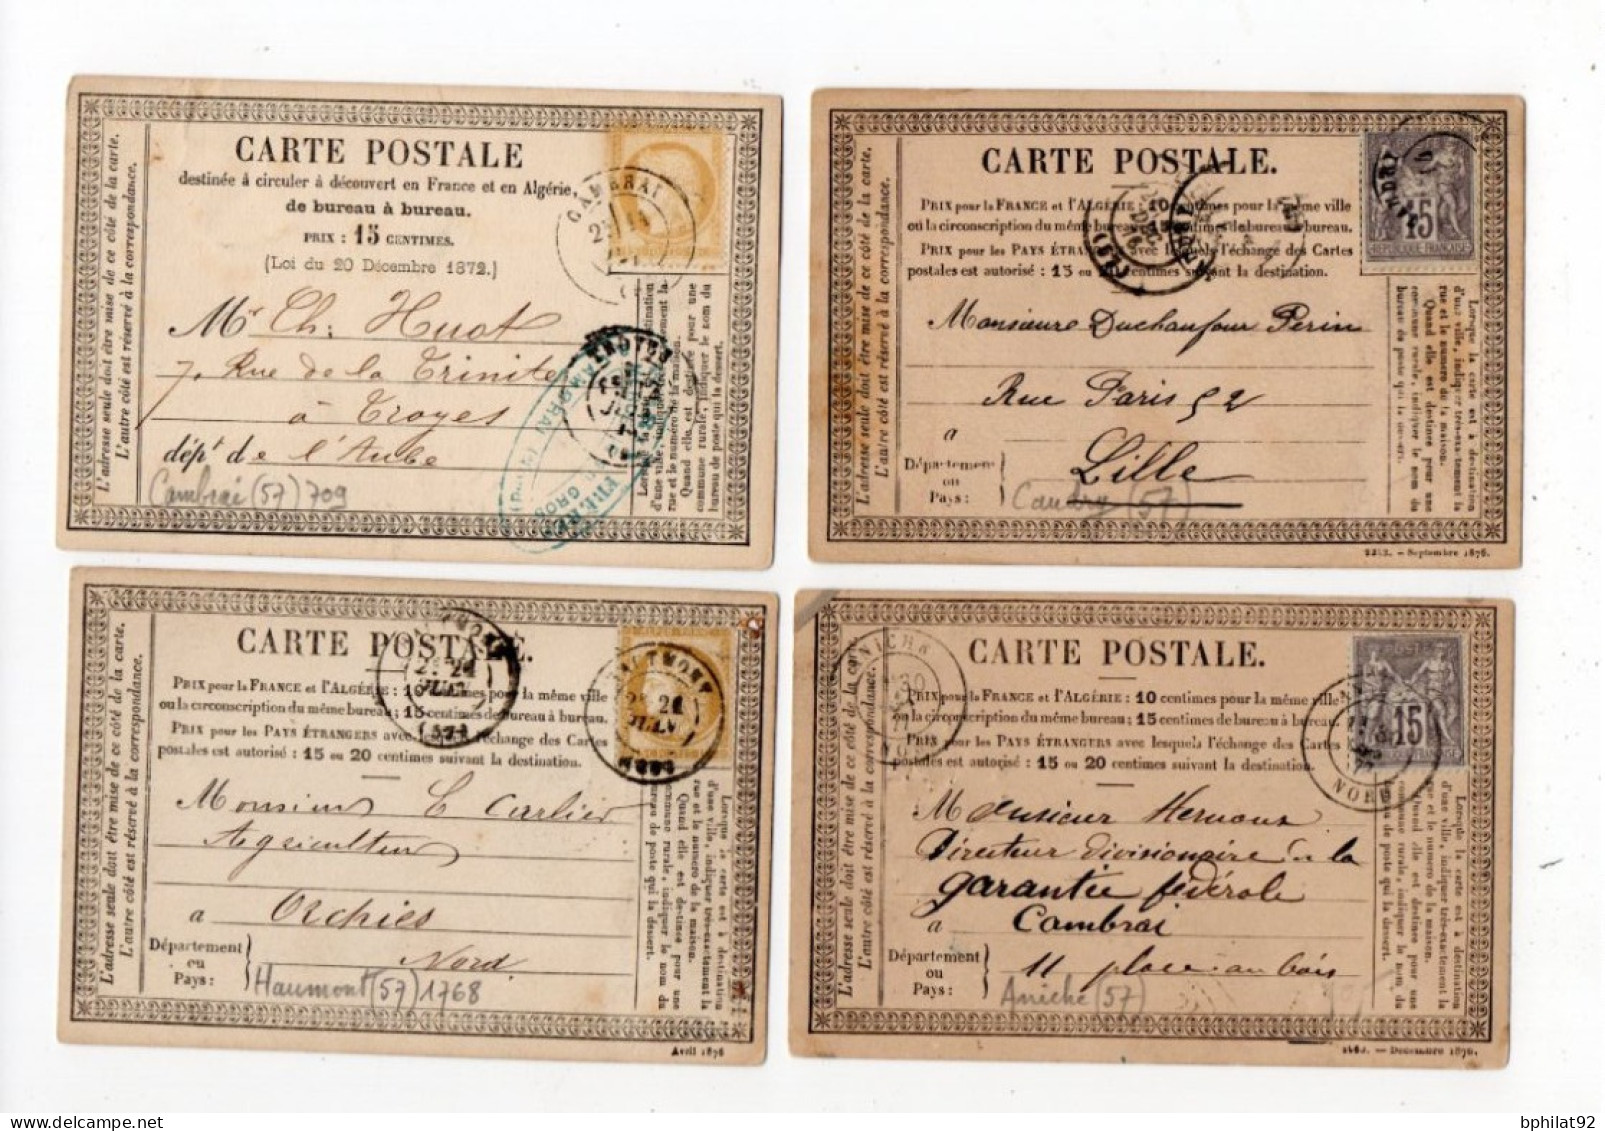 CARTE POSTALE
destinée à circuler à découvert en France et en Algérie,
de bureau à bureau.
PRIX : 15 CENTIMES.
(Loi du 20 Décembre 1872.)
L'adresse seule doit être mise de ce côté de la carte.
L'autre côté est réservé à la correspondance.
CAMBRAI
Mr Ch: Huot
7, Rue de la Trinité
à Troyes
dépt de l'Aube
Cambrai (57) 709
CARTE POSTALE.
PRIX pour la FRANCE et l'ALGÉRIE : 10 centimes pour la même ville
ou la circonscription du même bureau; 15 centimes de bureau à bureau.
PRIX pour les PAYS ÉTRANGERS avec lesquels l'échange des Cartes
postales est autorisé : 15 ou 20 centimes suivant la destination.
L'adresse seule doit être mise de ce côté de la carte.
L'autre côté est réservé à la correspondance.
15
REPUBLIQUE FRANÇAISE
Monsieure Duchaufour Perin
Rue Paris 52
a
Lille
Département
ou
Pays:
Caudry (57)
Lorsque la carte est à destination
d'une ville, indiquer très-exactement la
rue et le numéro de la maison.
Quand elle est destinée pour une
commune rurale, indiquer le nom du
bureau de poste qui la dessert.
- Septembre 1876.
CARTE POSTALE.
PRIX pour la FRANCE et l'ALGÉRIE : 10 centimes pour la même ville
ou la circonscription du même bureau; 15 centimes de bureau à bureau.
PRIX pour les PAYS ÉTRANGERS avec lesquels l'échange des Cartes
postales est autorisé : 15 ou 20 centimes suivant la destination.
L'adresse seule doit être mise de ce côté de la carte.
L'autre côté est réservé à la correspondance.
Monsieur C Carlier
Agriculteur
a Orchies
Département
ou
Pays:
Nord
Haumont (57) 1768
Lorsque la carte est à destination
d'une ville, indiquer très-exactement la
rue et le numéro de la maison.
Quand elle est destinée pour une
commune rurale, indiquer le nom du
bureau de poste qui la dessert.
Avril 1876
CARTE POSTALE.
PRIX pour la FRANCE et l'ALGÉRIE : 10 centimes pour la même ville
ou la circonscription du même bureau; 15 centimes de bureau à bureau.
PRIX pour les PAYS ÉTRANGERS avec lesquels l'échange des Cartes
postales est autorisé : 15 ou 20 centimes suivant la destination.
L'adresse seule doit être mise de ce côté de la carte.
L'autre côté est réservé à la correspondance.
15
NORD
Monsieur Hernoux
Directeur divisionaire de la
garantie fédérale
a Cambrai
Département
ou
Pays:
11 place au bois
Aniche (57)
Lorsque la carte est à destination
d'une ville, indiquer très-exactement la
rue et le numéro de la maison.
Quand elle est destinée pour une
commune rurale, indiquer le nom du
bureau de poste qui la dessert.
- Décembre 1876.
bphilat92